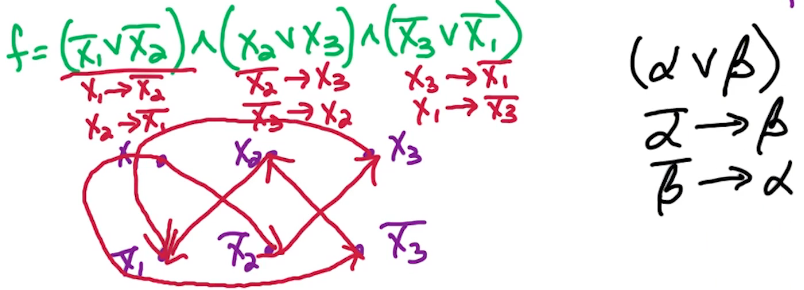 f = (x̄₁ ∨ x̄₂) ∧ (x₂ ∨ x₃) ∧ (x̄₃ ∨ x̄₁)
x₁ → x̄₂   x̄₂ → x₃   x₃ → x̄₁
x₂ → x̄₁   x̄₃ → x₂   x₁ → x̄₃
x   x₂   x₃
x̄₁   x̄₂   x̄₃
(α ∨ β)
ᾱ → β
β̄ → α